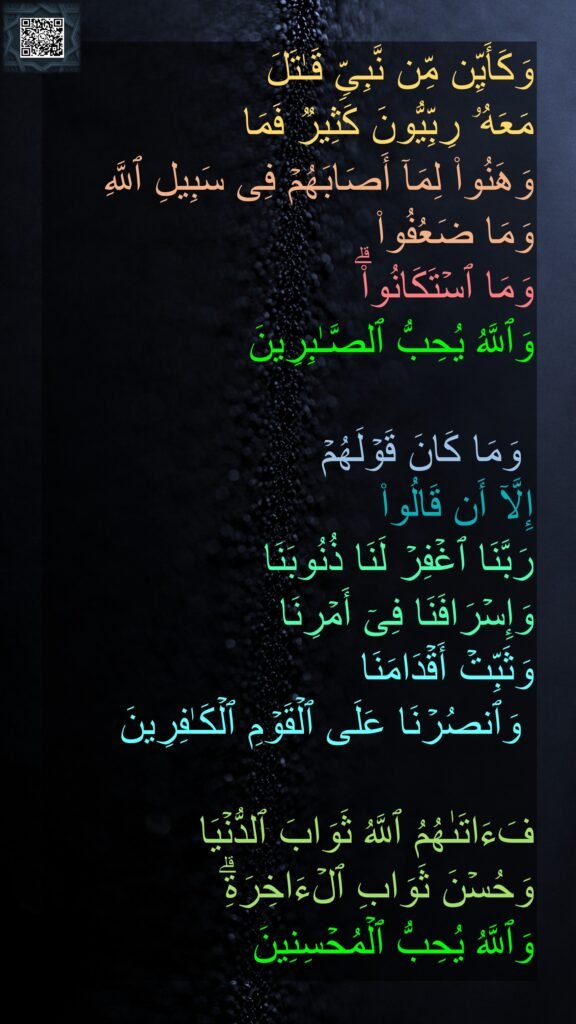 وَكَأَيِّن مِّن نَّبِىٍّ قَـٰتَلَ
مَعَهُۥ رِبِّيُّونَ كَثِيرٌ فَمَا
وَهَنُوا۟ لِمَآ أَصَابَهُمْ فِى سَبِيلِ ٱللَّهِ
وَمَا ضَعُفُوا۟
وَمَا ٱسْتَكَانُوا۟ ۗ
وَٱللَّهُ يُحِبُّ ٱلصَّـٰبِرِينَ
وَمَا كَانَ قَوْلَهُمْ
إِلَّآ أَن قَالُوا۟
رَبَّنَا ٱغْفِرْ لَنَا ذُنُوبَنَا
وَإِسْرَافَنَا فِىٓ أَمْرِنَا
وَثَبِّتْ أَقْدَامَنَا
وَٱنصُرْنَا عَلَى ٱلْقَوْمِ ٱلْكَـٰفِرِينَ
فَـَٔاتَىٰهُمُ ٱللَّهُ ثَوَابَ ٱلدُّنْيَا
وَحُسْنَ ثَوَابِ ٱلْـَٔاخِرَةِ ۗ
وَٱللَّهُ يُحِبُّ ٱلْمُحْسِنِينَ